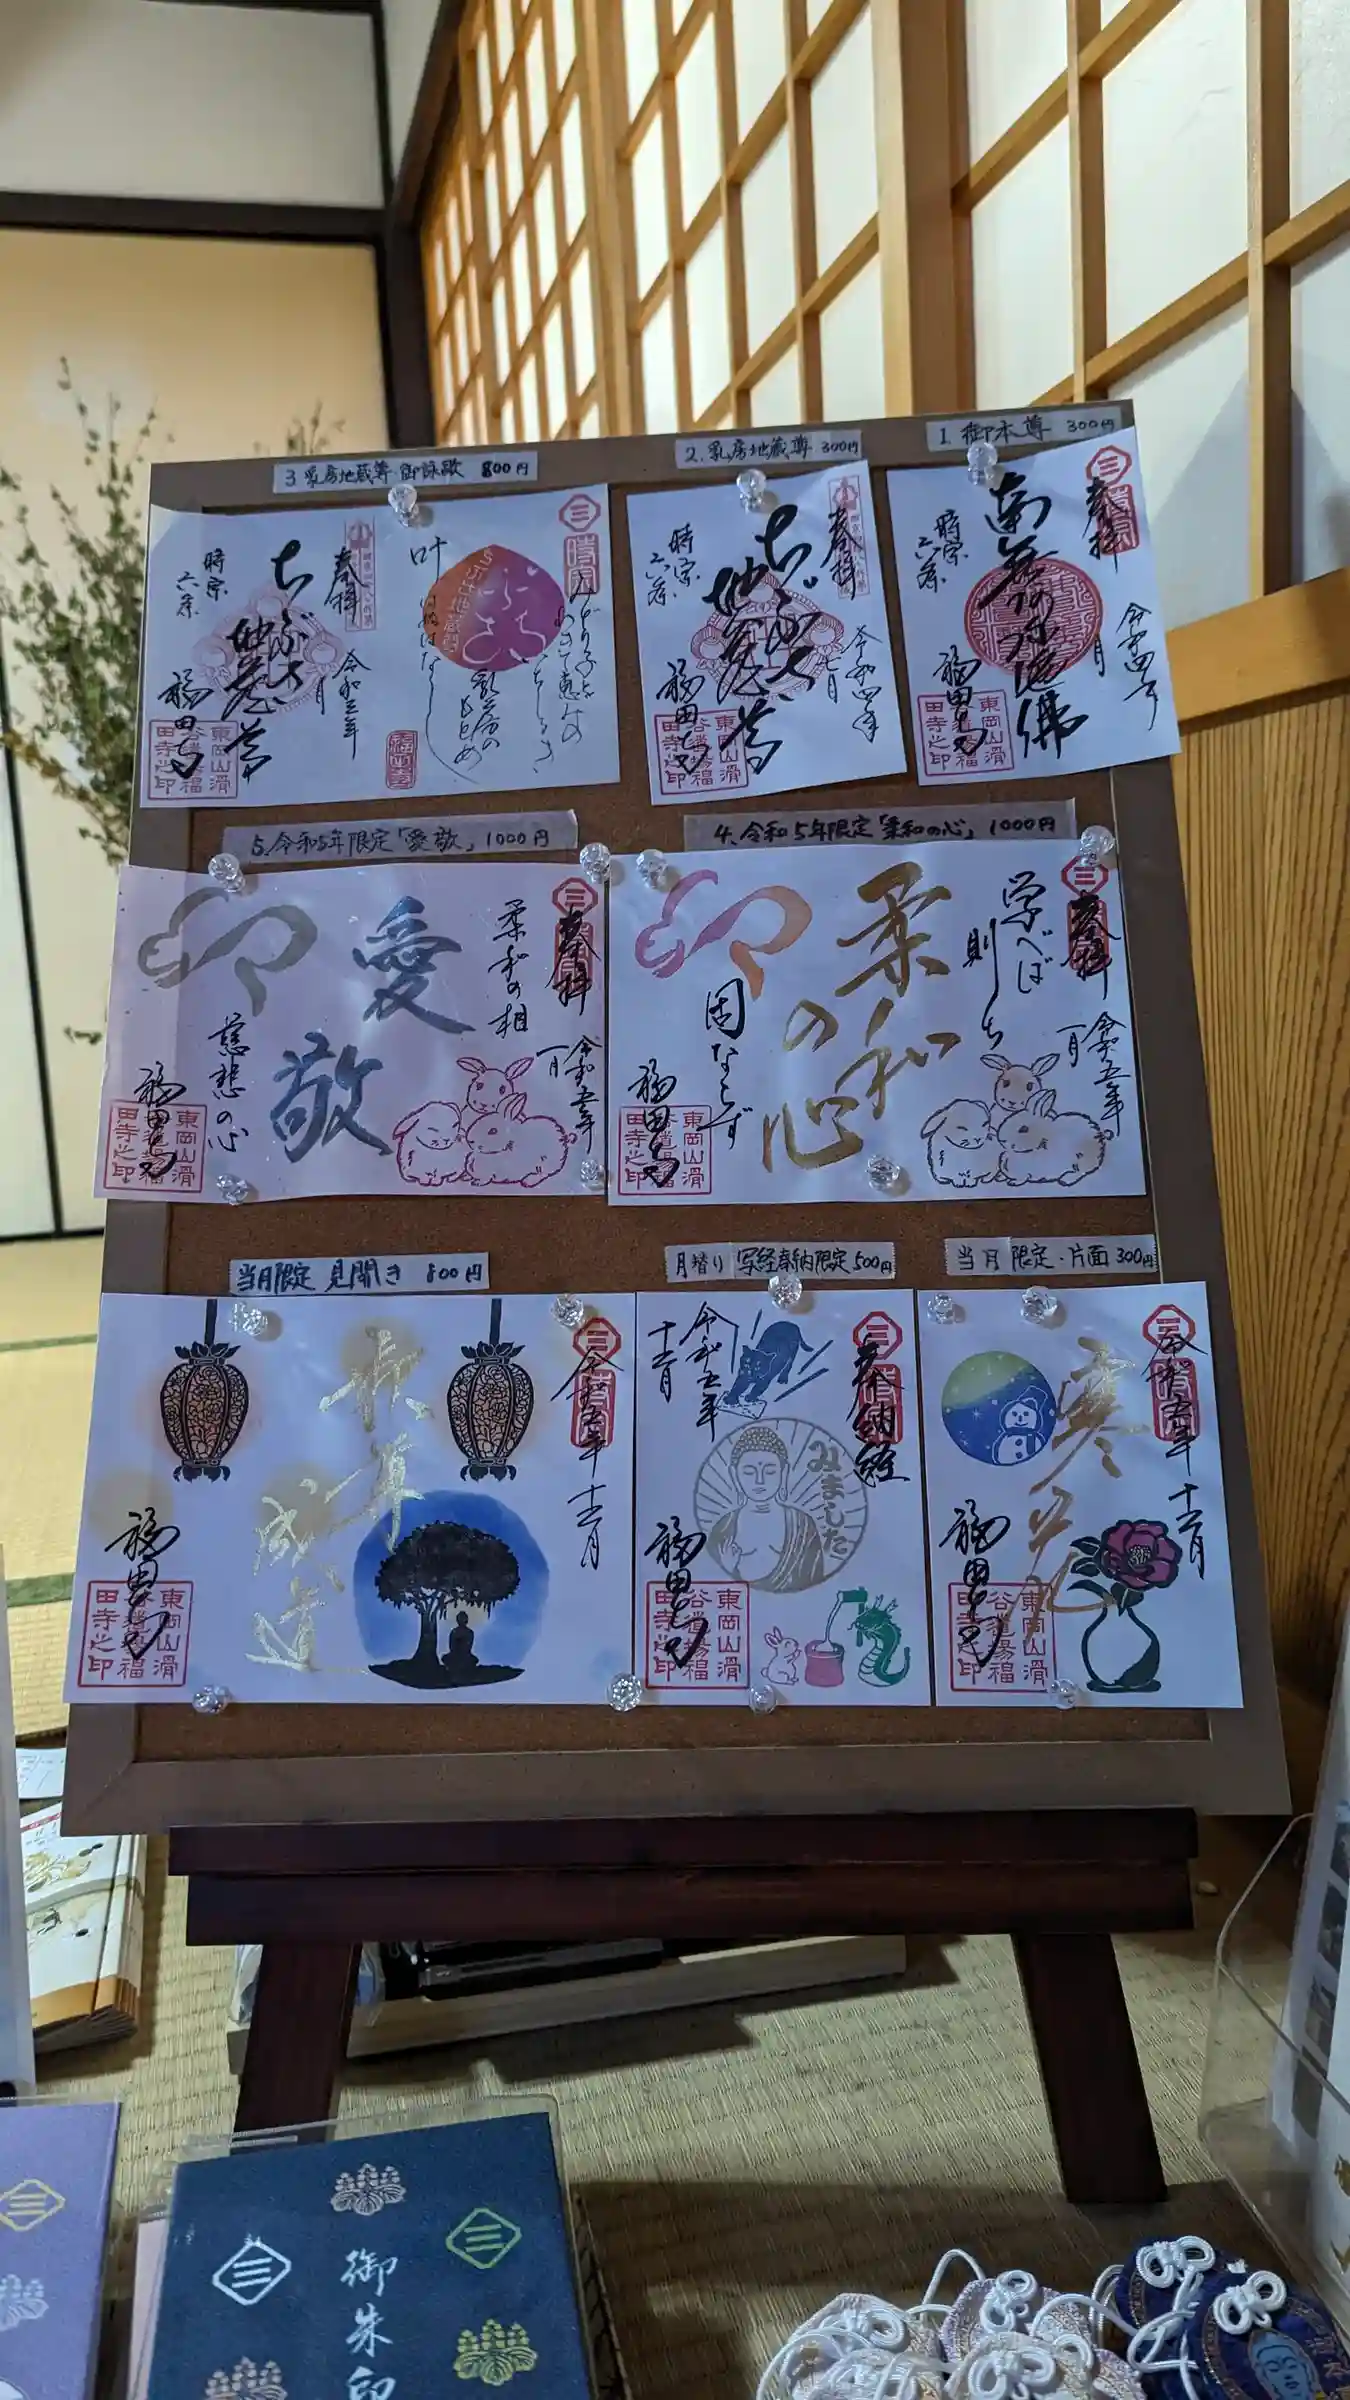 1. 御本尊 300円
奉拝
時宗
南無阿弥陀佛
令和四年
月
時宗
六条
福田寺
東岡山滑
谷道場福
田寺之印
2. 乳房地蔵尊 300円
奉拝
ちぶさ
地蔵尊
令和四年
七月
時宗
六条
福田寺
東岡山滑
谷道場福
田寺之印
3 乳房地蔵尊 御詠歌 800円
時宗
叶
福田寺
奉拝
ちぶさ
地蔵尊
令和三年
月
時宗
六条
福田寺
東岡山滑
谷道場福
田寺之印
4. 令和5年限定「柔和の心」1000円
奉拝
令和五年
一月
学べば
則ち
柔和
の心
固ならず
印
福田寺
東岡山滑
谷道場福
田寺之印
5. 令和5年限定「愛敬」1000円
奉拝
令和五年
一月
柔和の相
愛
敬
慈悲の心
印
福田寺
東岡山滑
谷道場福
田寺之印
当月限定・片面300円
令和五年
十二月
福田寺
東岡山滑
谷道場福
田寺之印
月替り 写経奉納限定500円
奉納経
みました
令和五年
十二月
福田寺
東岡山滑
谷道場福
田寺之印
当月限定 見開き 800円
令和五年
十二月
成道
福田寺
東岡山滑
谷道場福
田寺之印
御朱印